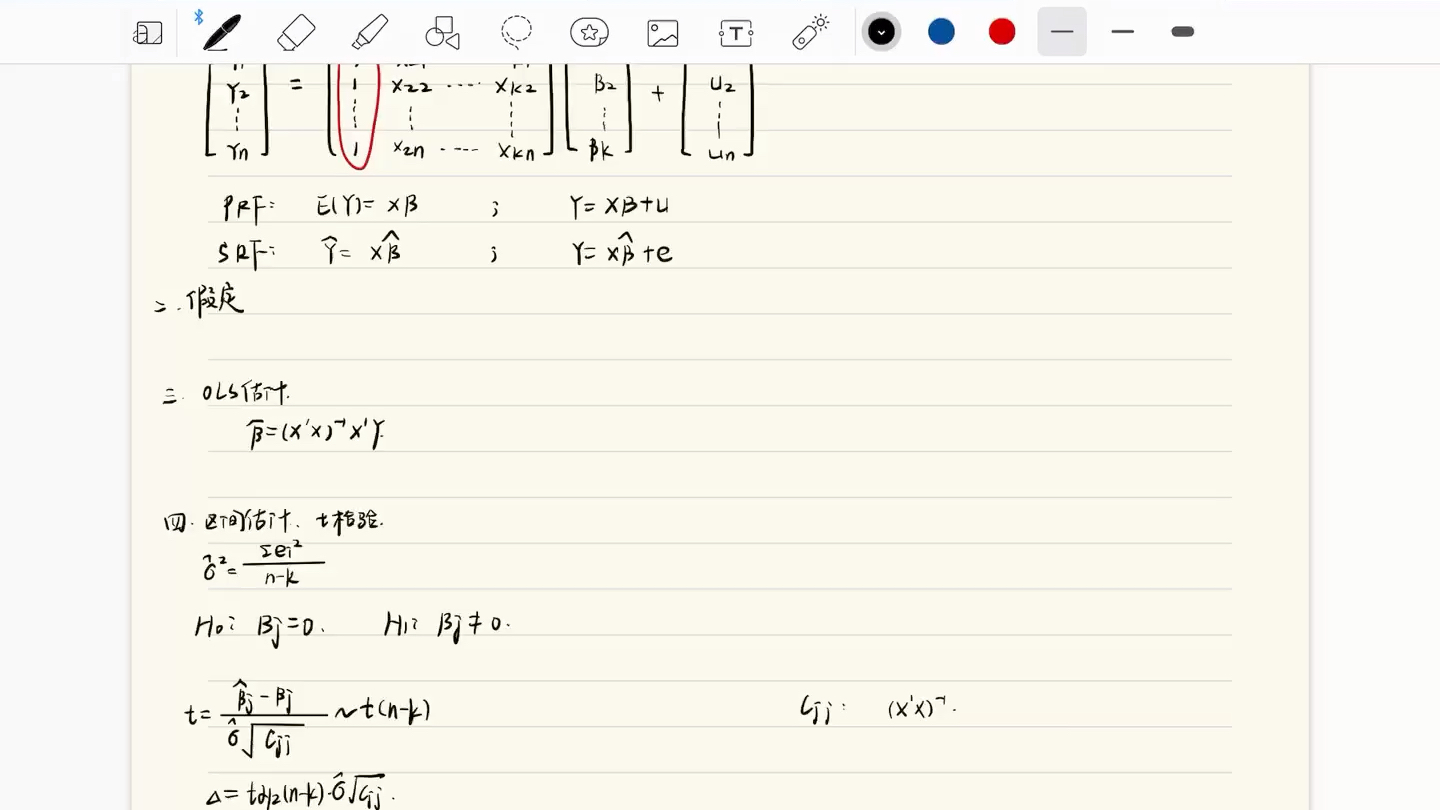 Y2 = 1 X22 ---- Xk2 β2 + u2
Yn 1 X2n ---- Xkn βk un
PRF: E(Y)= Xβ ; Y= Xβ+u
SRF: Ŷ= Xβ̂ ; Y= Xβ̂+e
二.假定
三. OLS估计.
β̂=(X'X)⁻¹X'Y.
四. 区间估计、t检验.
σ̂²= Σei² / n-k
H0: βj=0. H1: βj≠0.
t= β̂j-βj / σ̂√Cjj ~t(n-k) Cjj: (X'X)⁻¹.
Δ= tα/2(n-k)·σ̂√Cjj.